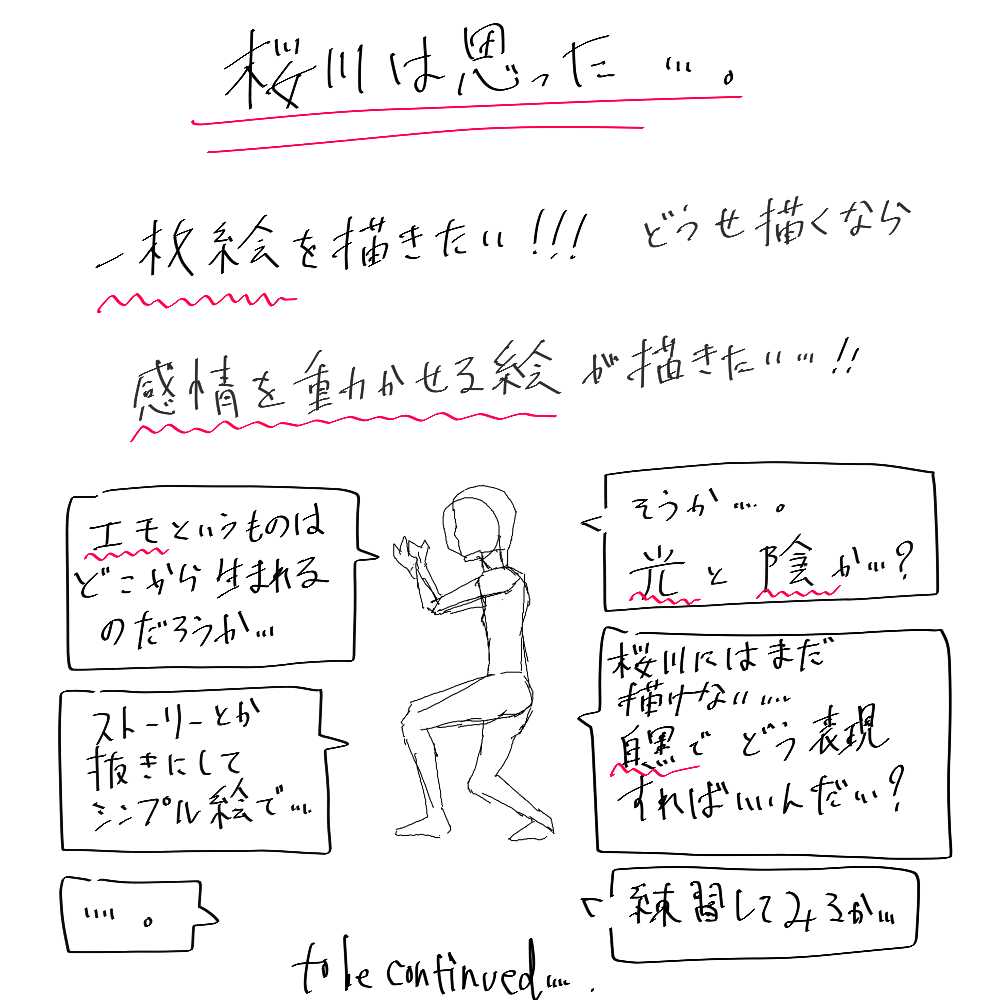 桜川は思った…。
一枚絵を描きたい!!! どうせ描くなら
感情を動かせる絵が描きたい…!!
エモというものは
どこから生まれる
のだろうか…
ストーリーとか
抜きにして
シンプル絵で…
…。
そうか…。
光と陰か…?
桜川にはまだ
描けない…
白黒でどう表現
すればいいんだ…?
練習してみるか…
to be continued….